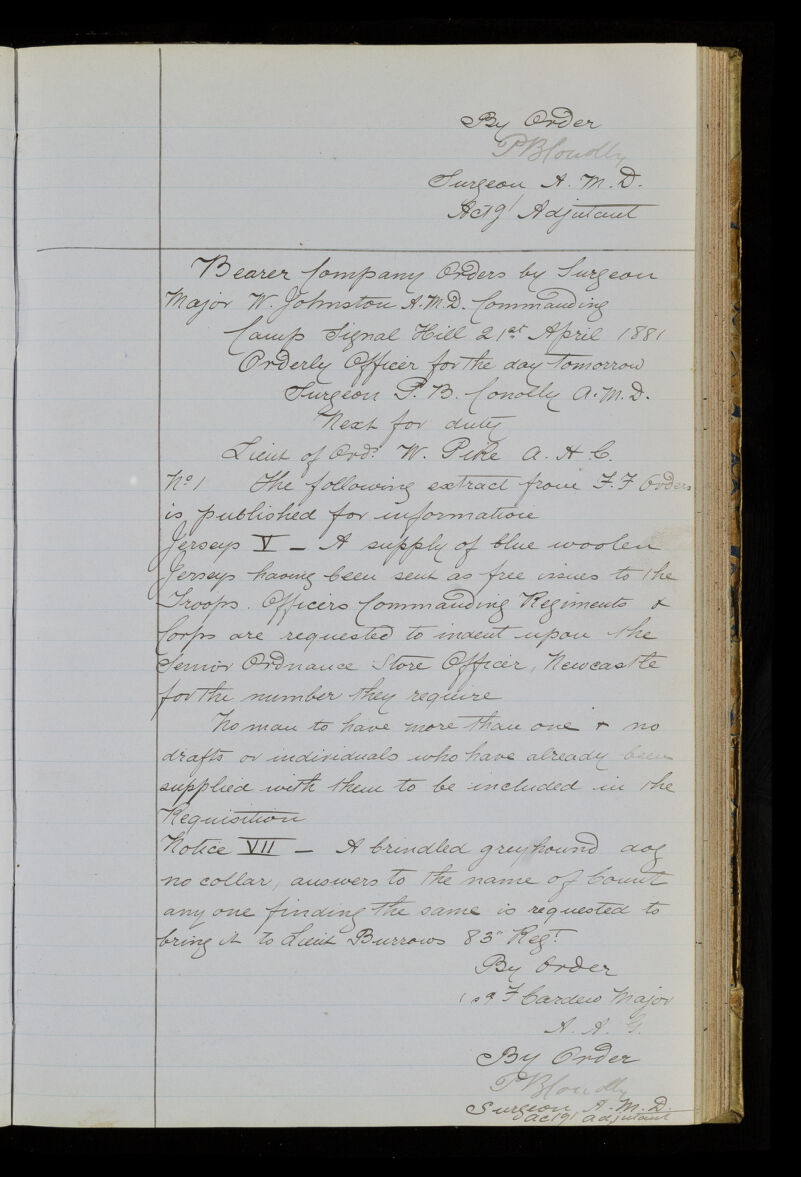 By Order
PBConolly
Surgeon A.M.D.
Actg Adjutant
Bearer Company Orders by Surgeon
Major W. Johnston A.M.D. Commanding
Camp Signal Hill 21st April 1881
Orderly Officer for the day tomorrow
Surgeon P. B. Conolly A.M.D.
Next for duty
Lieut of Ords. W. Pike A.H.C.
No 1 The following extract from F.F Orders
is published for information
Jerseys V — A supply of blue woolen
Jerseys having been sent as free issues to the
Troops. Officers Commanding Regiments &
Corps are requested to indent upon the
Senior Ordnance Store Officer, Newcastle
for the number they require
No man to have more than one & no
drafts or individuals who have already been
supplied with them to be included in the
Requisition
Notice VII — A brindled greyhound dog
no collar, answers to the name of Count
any one finding the same is requested to
bring it to Lieut Burrows 83" Regt
By Order
F Cardew Major
A. A. G.
By Order
PBConolly
Surgeon A.M.D.
Actg Adjutant